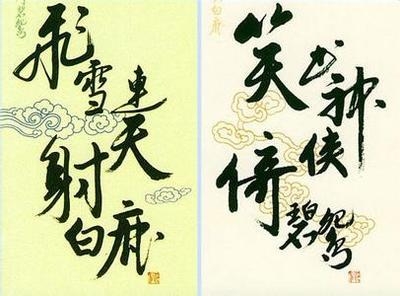 飛雪連天射白鹿
笑书神侠倚碧鴛